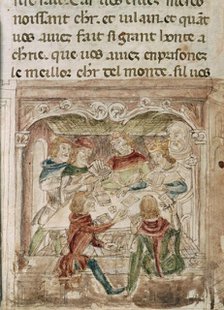 noissant chr. et vilain. et quāt
vos auiez fait si grant honte a
chrie. que uos auiez enpasone
le meilleɀ chr del monte. sil uos